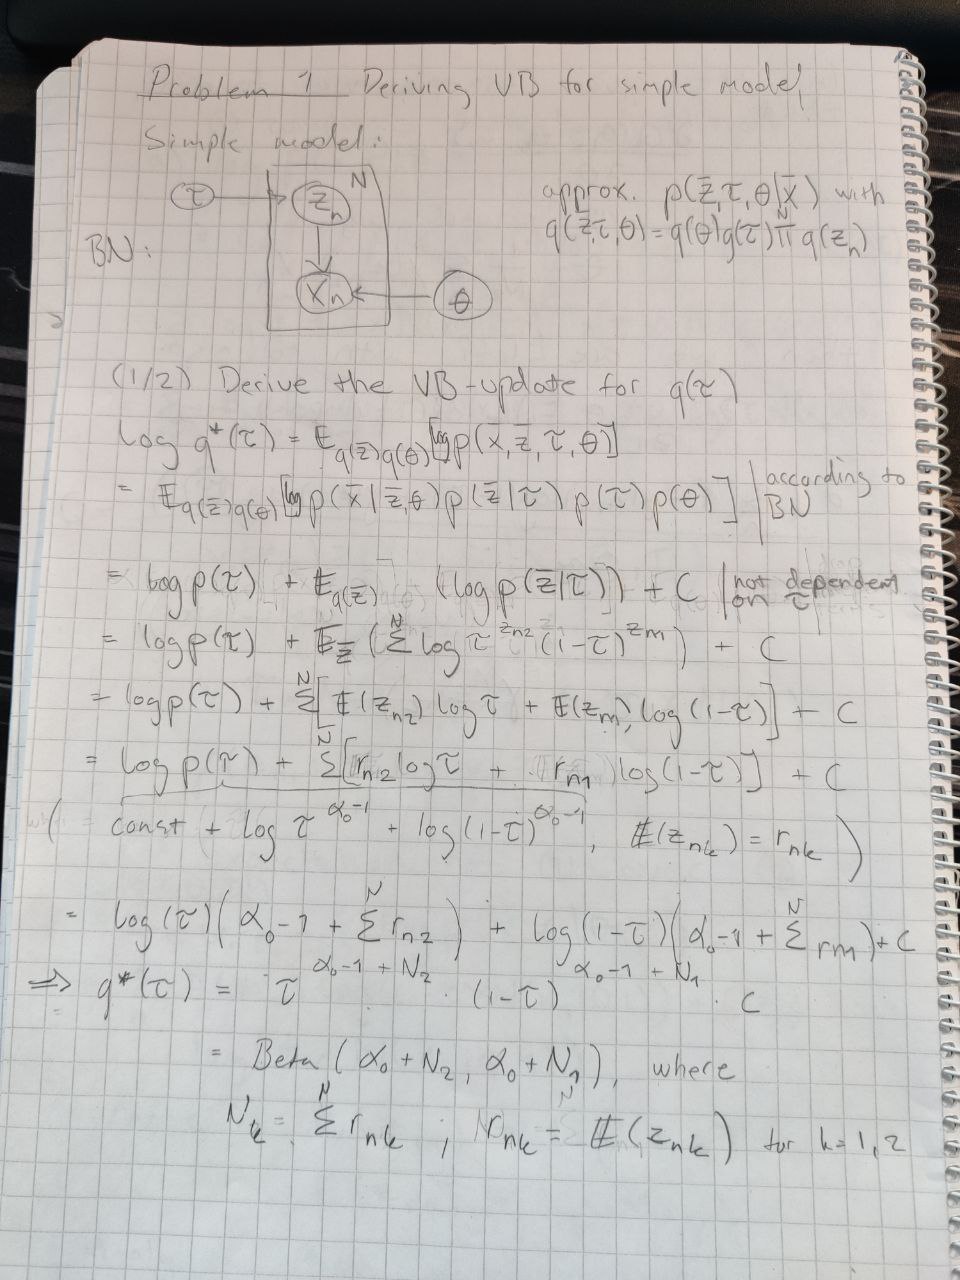 Problem 1 Deriving VB for simple model
Simple model:
τ z̄n N
approx. p(z̄,τ,θ|x̄) with
q(z̄,τ,θ) = q(θ)q(τ) Π^N q(zn)
BN:
xn θ
(1/2) Derive the VB-update for q(τ)
log q*(τ) = E_q(z̄)q(θ)[log p(x̄,z̄,τ,θ)]
= E_q(z̄)q(θ)[log p(x̄|z̄,θ)p(z̄|τ)p(τ)p(θ)] | according to BN
= log p(τ) + E_q(z̄) (log p(z̄|τ)) + C | not dependent on τ
= log p(τ) + E_z̄ (Σ^N log τ^zn2 (1-τ)^zn1) + C
= log p(τ) + Σ^N [E(zn2) log τ + E(zn1) log(1-τ)] + C
= log p(τ) + Σ^N [rn2 log τ + rn1 log(1-τ)] + C
( = const + log τ^α0-1 + log(1-τ)^α0-1, E(znk) = rnk )
= log(τ)(α0-1 + Σ^N rn2) + log(1-τ)(α0-1 + Σ^N rn1) + C
⇒ q*(τ) = τ^α0-1+N2 (1-τ)^α0-1+N1 · C
= Beta(α0 + N2, α0 + N1), where
Nk = Σ^N rnk ; rnk = E(znk) for k=1,2